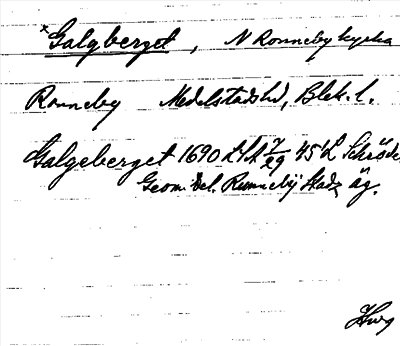 *Galgberget, N Ronneby kyrka
Ronneby Medelstads hd, Blek. l.
Galgeberget 1690 LSA 7/29 45 L Schröde
Geom. del. Runneby Stadz äg.